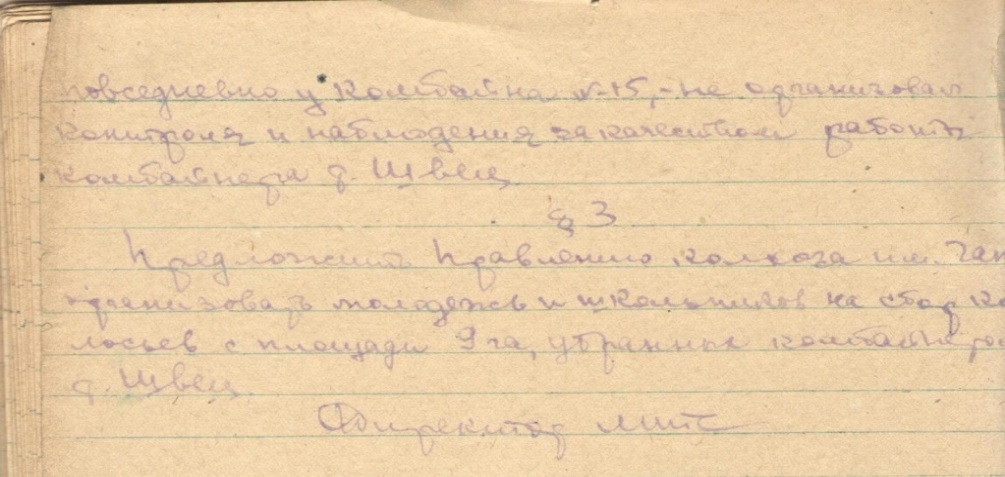 повседневно у комбайна №15, - не организовал
контроля и наблюдения за качеством работы
комбайнера т. Швец.
§ 3
Предложить правлению колхоза им.
организовать молодежь и школьников на сбор ко
лосьев с площади 9 га, убранных комбайнером
т. Швец.
Директор МТС